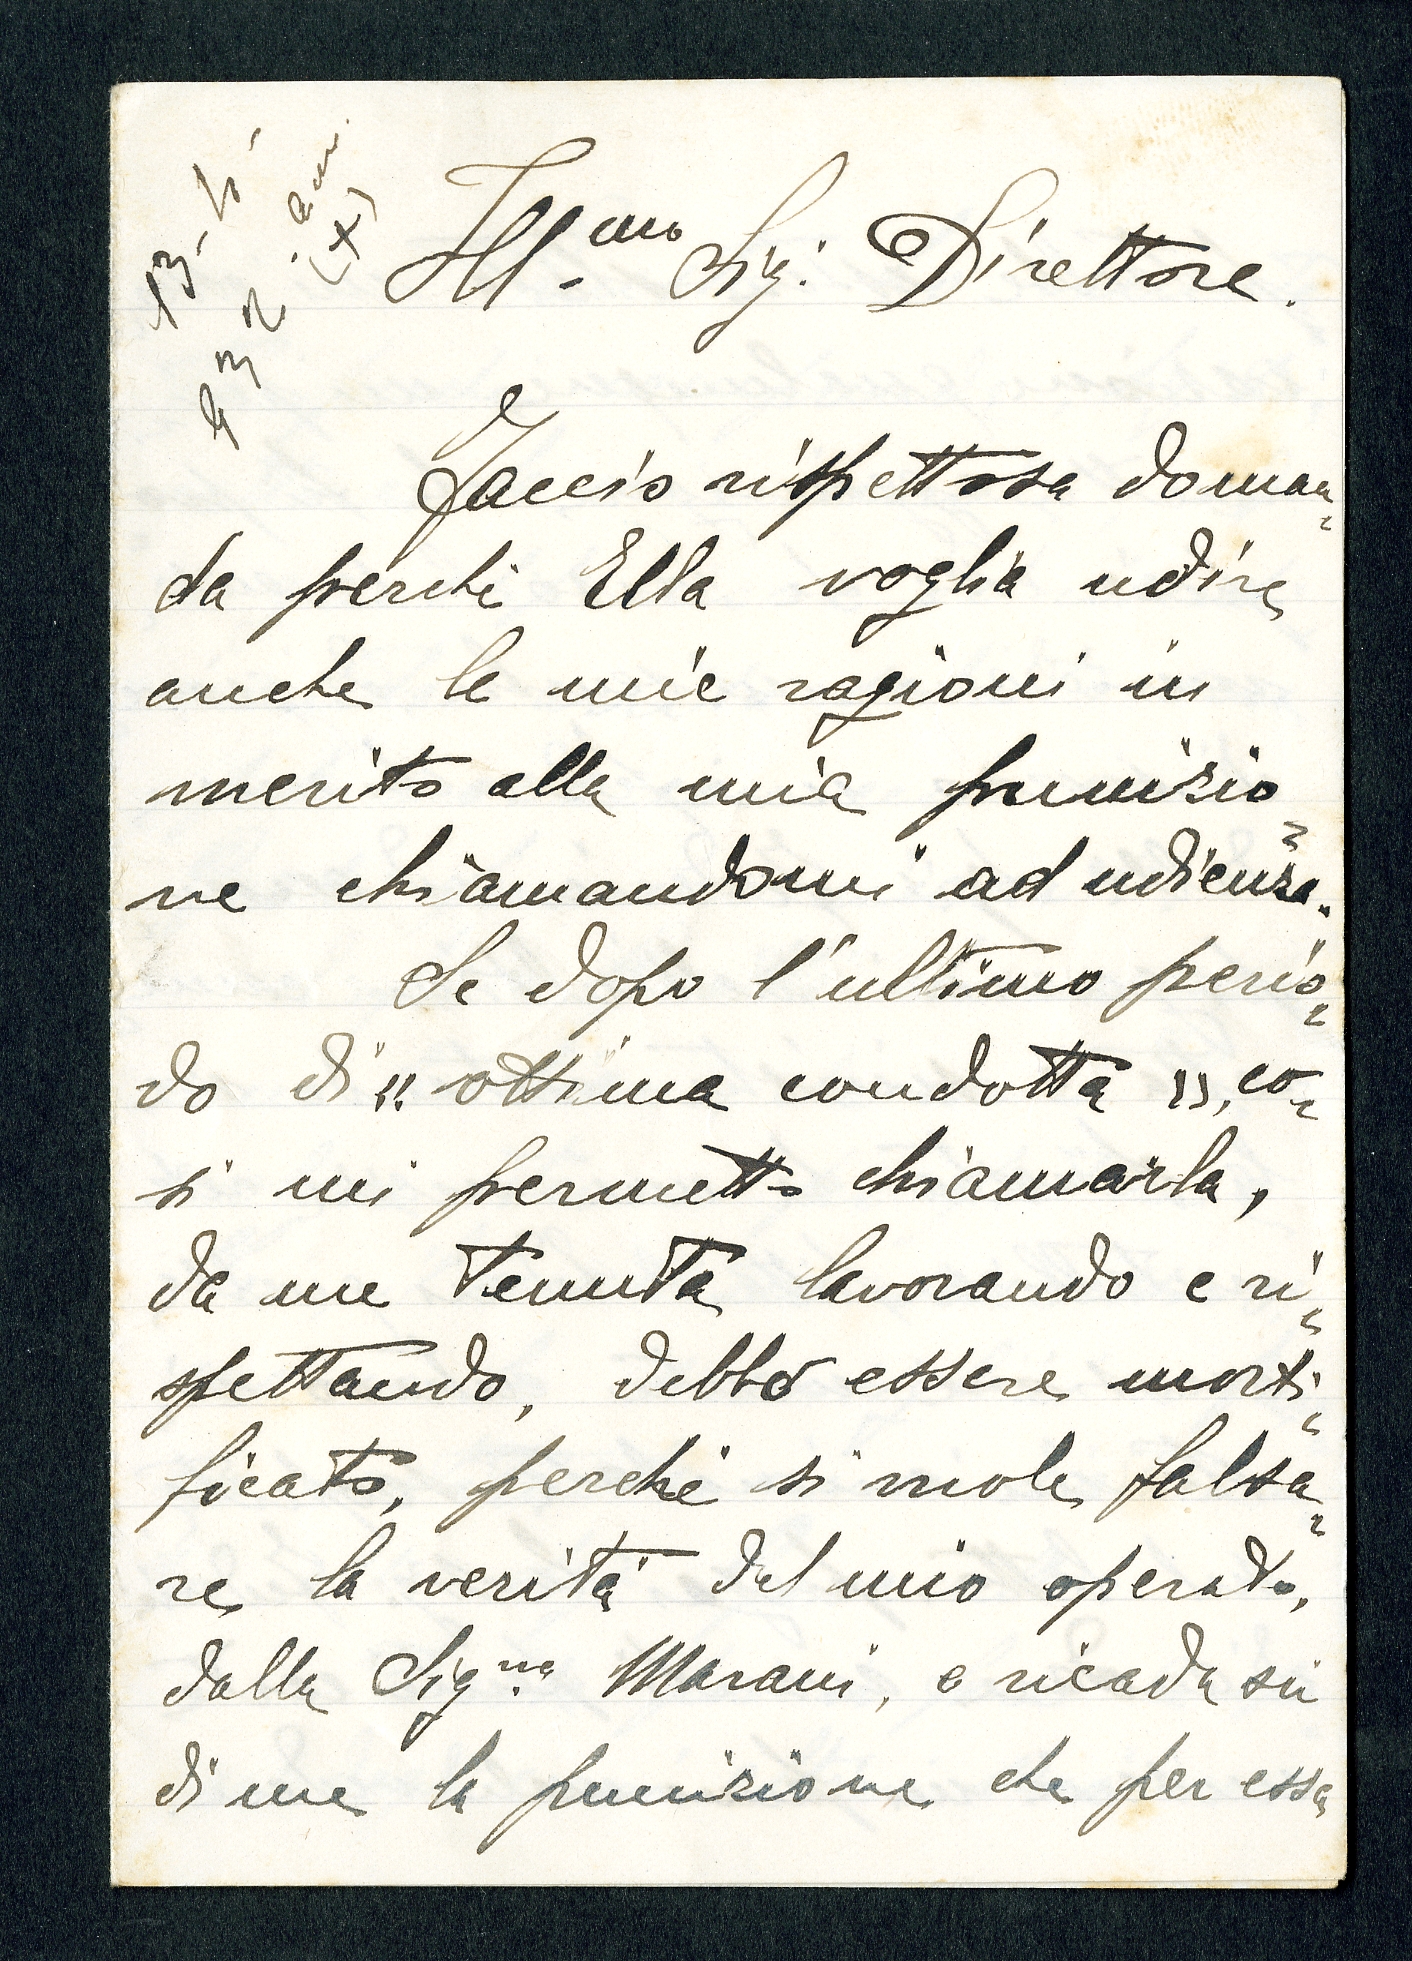 Ill.mo Sig. Direttore.
Faccio rispettosa doman-
da perchè Ella voglia udire
anche le mie ragioni in
merito alla mia punizio-
ne chiamandomi ad udienza.
Se dopo l'ultimo perio-
do di "ottima condotta", co-
sì mi permetto chiamarla,
da me tenuta lavorando e ri-
spettando, debbo essere morti-
ficato, perchè si vuole falsa-
re la verità del mio operato,
dalla Sig.na Marani, e ricada su
di me la punizione che per essa